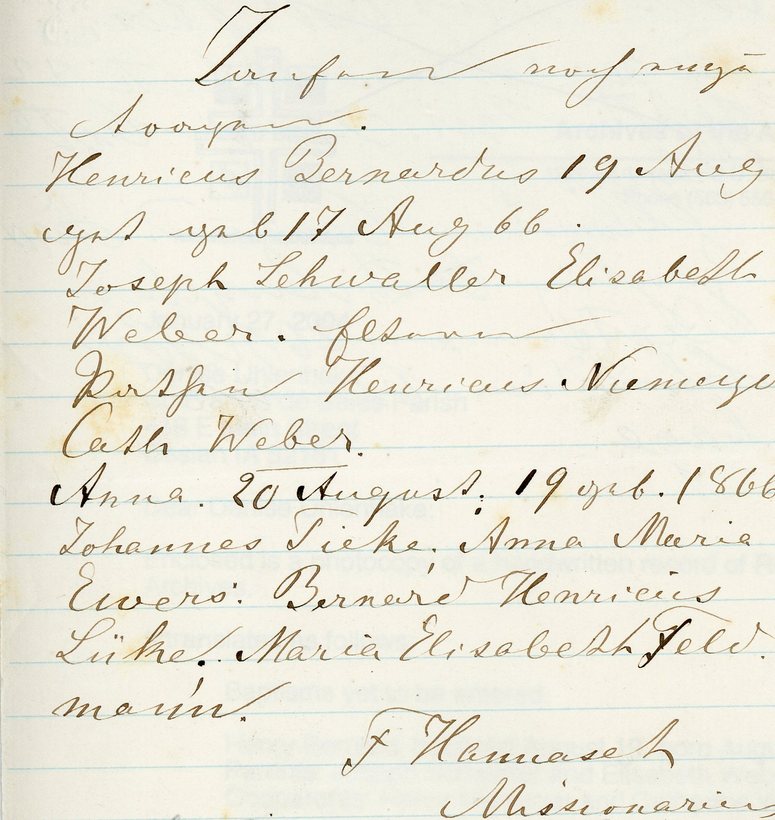 Taufen noch einzu
tragen.
Henricus Bernardus 19 Aug
get geb 17 Aug 66.
Joseph Schwaller Elisabeth
Weber. Eltern
Pathen Henricus Niemeye
Cath Weber.
Anna. 20 August. 19 geb. 1866
Johannes Tieke. Anna Maria
Ewers. Bernard Henricus
Lüke. Maria Elisabeth Feld.
mann.
F Hannasch
Missionarius